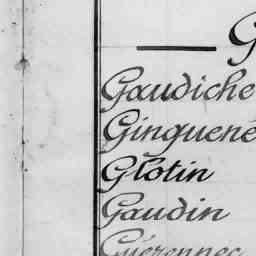 G
Gaudiche
Ginguené
Glotin
Gaudin
Guérennec